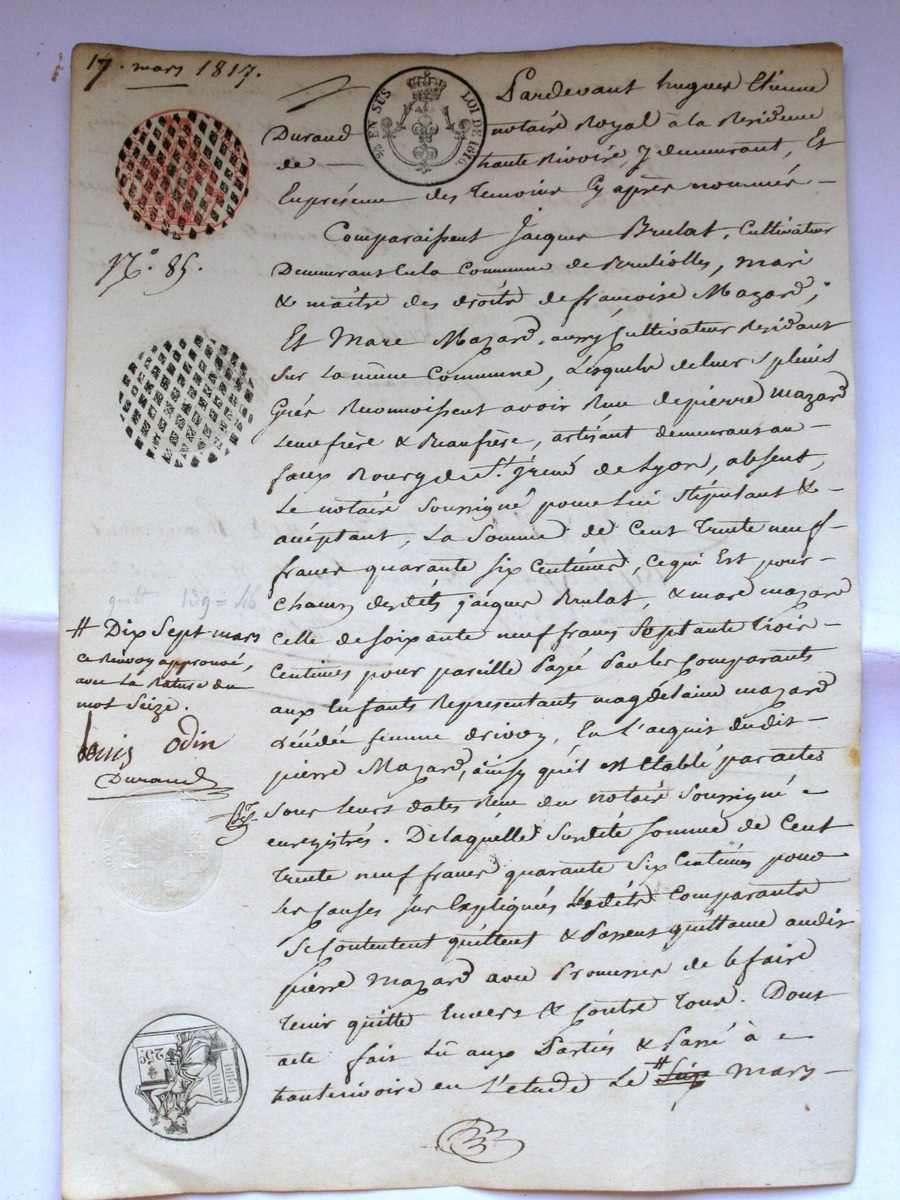 17. mars 1817.
EN SUS
LOI DE 1816.
Pardevant hugues Etienne
Durand notaire Royal à la Residence
de — haute Rivoire, y demeurant, Et
En présence des temoins Cy après nommés —
N.º 85.
Comparaissent Jacques Brulat, Cultivateur
Demeurant En la Commune de Brulliolles, mari
& maitre des droits de françoise Mazard,
Et Marc Mazard, aussy Cultivateur Residant
Sur La même Commune, Lesquels de leurs pleins
Grés Reconnoissent avoir Reçu de pierre Mazard
Leur frère & Beaufrère, artisant demeurant au —
faux Bourg de St. Jrené de Lyon, absent,
Le notaire Soussigné pour Lui Stipulant & —
acceptant, La Somme de Cent Trente neuf —
francs quarante six Centimes, Ce qui Est pour —
Chacun desdits jacques Brulat, & marc mazard
Celle de Soixante neuf francs Septante Trois —
Centimes pour pareille Payée Par les Comparants
aux Enfants Representants magdelaine mazard
décédée femme En L'acquit dudit —
pierre Mazard, ainsy qu'il est Etabli par actes
Sous leurs dates Reçu du notaire Soussigné
enregistrés. De laquelle Susdite Somme de Cent
Trente neuf francs quarante Six Centimes pour
Les Causes sus Expliquées Lesdits Comparants
Se Contentent quittent & Passent quittance audit
pierre Mazard avec Promesse de le faire
Tenir quitte Envers & Contre Tous. Dont
acte fait Lû aux Parties & Passé à
hauterivoire en L'etude Le # Seize Mars —
quitt 139 = 46
# Dix Sept mars
Ce Renvoy approuvé,
avec La Rature du
mot Seize.
Louis Odin
Durand
25c